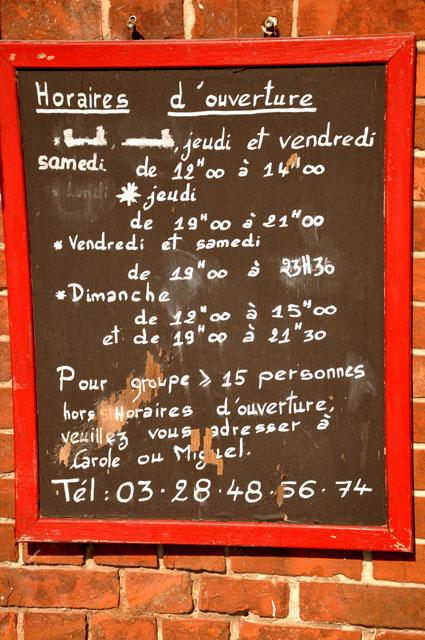 Horaires d'ouverture
, , jeudi et vendredi
samedi de 12H00 à 14H00
Lundi * jeudi
de 19H00 à 21H00
* Vendredi et samedi
de 19H00 à 23H30
* Dimanche
de 12H00 à 15H00
et de 19H00 à 21H30
Pour groupe > 15 personnes
hors Horaires d'ouverture,
veuillez vous adresser à
Carole ou Miguel.
Tél : 03.28.48.56.74